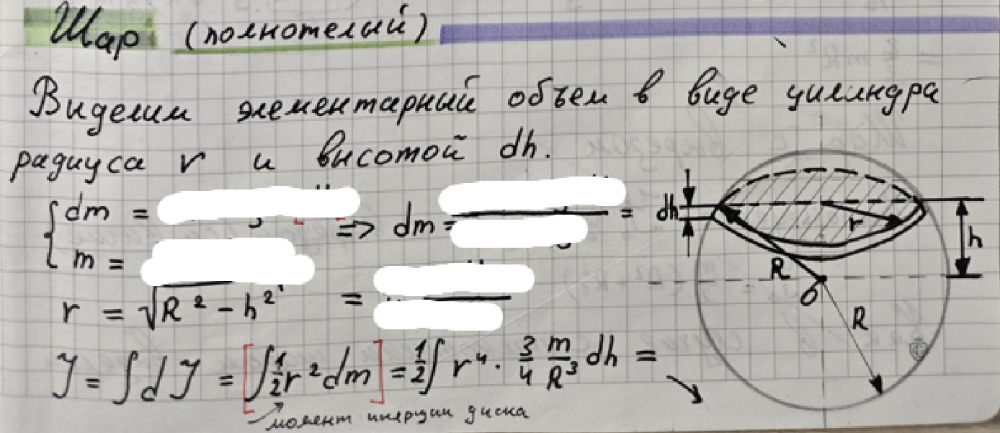 Шар (полнотелый)
Виделим элементарный объем в виде цилиндра
радиуса r и высотой dh.
dm = => dm = =
m =
r = √R² - h² =
J = ∫dJ = [∫½r²dm] = ½∫r⁴ · ¾ m/R³ dh =
момент инерции диска
dh
r
h
R
O
R